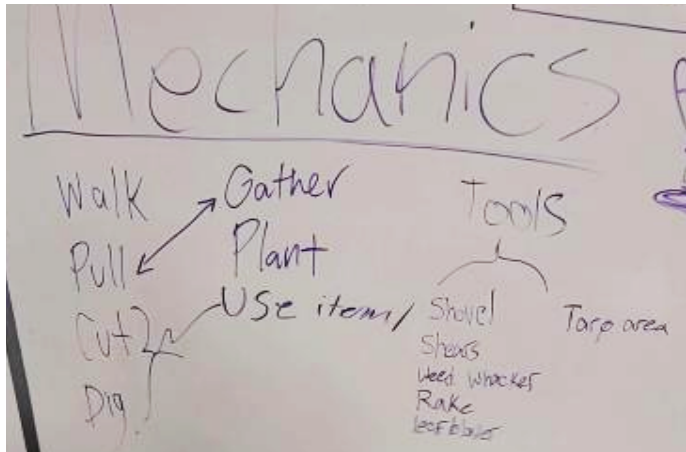 Mechanics
Walk
Pull
Cut
Dig
Gather
Plant
Use item/
Tools
Shovel
Shears
Weed Whacker
Rake
leafblower
Tarp area